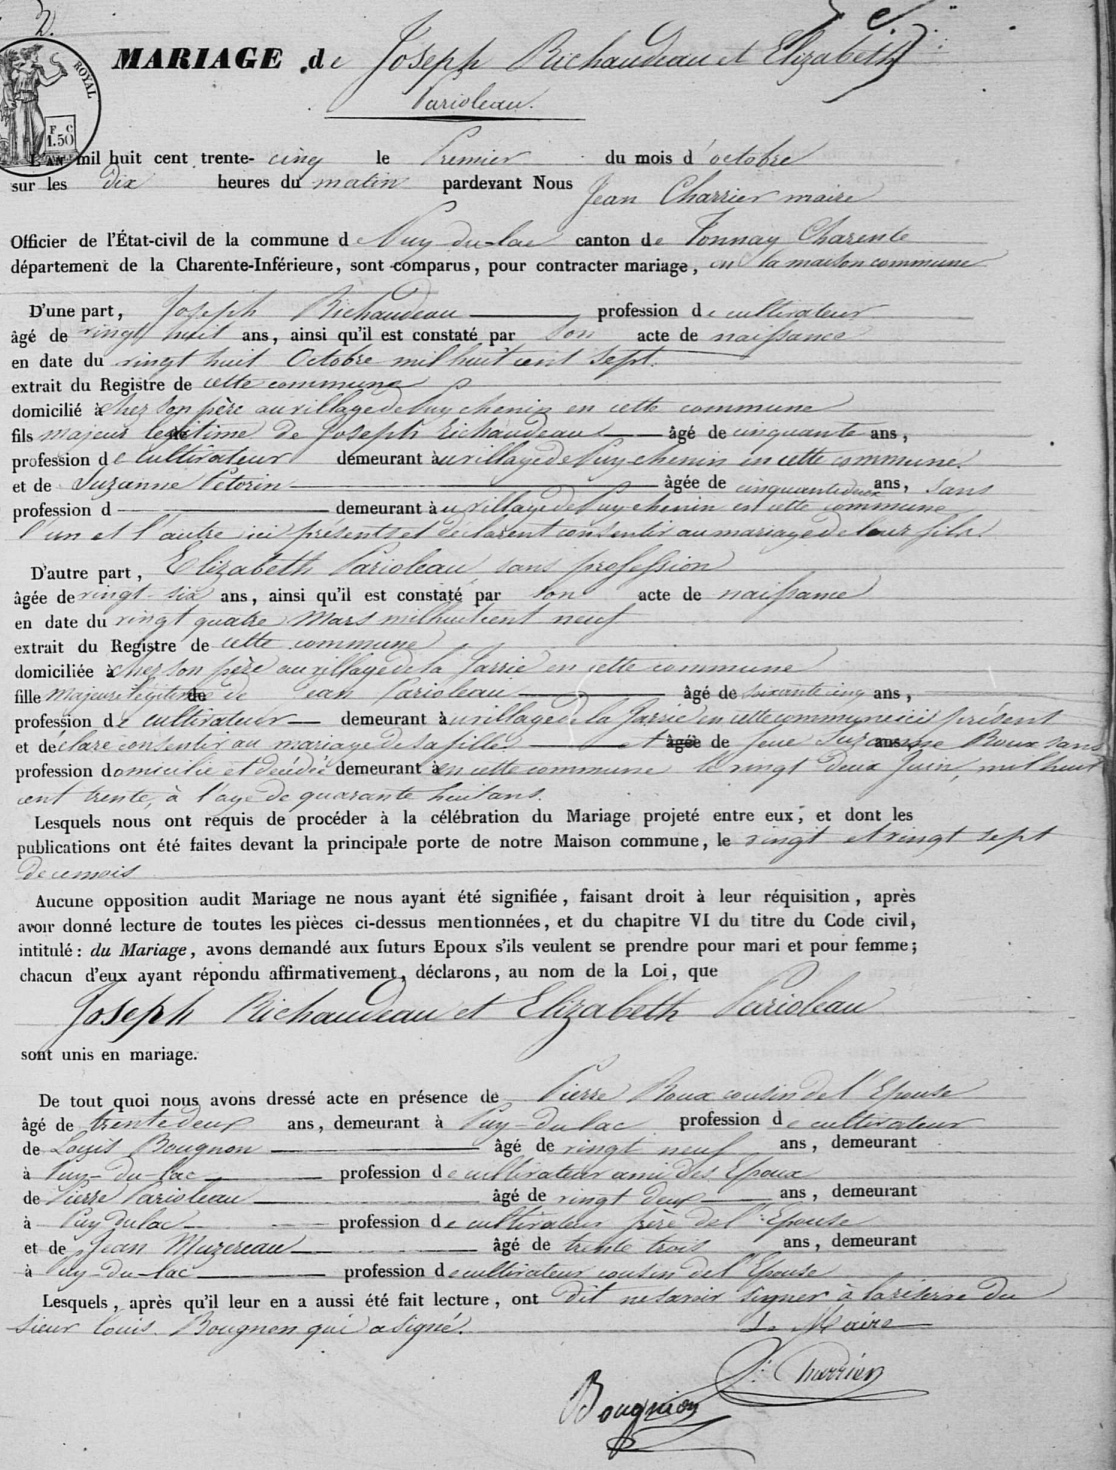 2.
ROYAL
F. C
1.50
MARIAGE de Joseph Richaudeau et Elizabeth
Parioleau.
L'AN mil huit cent trente- cinq le Premier du mois d'octobre
sur les dix heures du matin pardevant Nous Jean Charrier maire
Officier de l'État-civil de la commune de Puy-du-lac canton de Tonnay Charente
département de la Charente-Inférieure, sont comparus, pour contracter mariage, en la maison commune
D'une part, Joseph Richaudeau profession de cultivateur
âgé de vingt huit ans, ainsi qu'il est constaté par son acte de naissance
en date du vingt huit Octobre mil huit cent sept.
extrait du Registre de cette commune
domicilié à chez son père au village de Puy chenin en cette commune
fils majeur legitime de Joseph Richaudeau âgé de cinquante ans,
profession de cultivateur demeurant à au village de Puy chenin en cette commune.
et de Suzanne Petorin âgée de cinquante deux ans, sans
profession d demeurant à au village de Puy chenin en cette commune
l'un et l'autre ici présents et déclarent consentir au mariage de leur fils.
D'autre part, Elizabeth Parioleau sans profession
âgée de vingt-six ans, ainsi qu'il est constaté par son acte de naissance
en date du vingt quatre Mars mil huit cent neuf
extrait du Registre de cette commune
domiciliée à chez son père au village de la Jarrie en cette commune
fille majeure legitime de Jean Parioleau âgé de soixante cinq ans,
profession de cultivateur demeurant à au village de la Jarrie en cette commune ici présent
et déclare consentir au mariage de sa fille et âgée de feue Suzanne ans Roux sans
profession domicilié et décédée demeurant à en cette commune le vingt deux Juin, mil huit
cent trente, à l'age de quarante huit ans.
Lesquels nous ont requis de procéder à la célébration du Mariage projeté entre eux, et dont les
publications ont été faites devant la principale porte de notre Maison commune, le vingt et vingt sept
de ce mois
Aucune opposition audit Mariage ne nous ayant été signifiée, faisant droit à leur réquisition, après
avoir donné lecture de toutes les pièces ci-dessus mentionnées, et du chapitre VI du titre du Code civil,
intitulé: du Mariage, avons demandé aux futurs Epoux s'ils veulent se prendre pour mari et pour femme;
chacun d'eux ayant répondu affirmativement, déclarons, au nom de la Loi, que
Joseph Richaudeau et Elizabeth Parioleau
sont unis en mariage.
De tout quoi nous avons dressé acte en présence de Pierre Roux cousin de l'Epouse
âgé de trente deux ans, demeurant à Puy-du lac profession de cultivateur
de Louis Bougnon âgé de vingt neuf ans, demeurant
à Puy-du-lac profession de cultivateur ami des Epoux
de Pierre Parioleau âgé de vingt deux ans, demeurant
à Puy du lac profession de cultivateur frère de l'Epouse
et de Jean Muzereau âgé de trente trois ans, demeurant
à Puy-du-lac profession de cultivateur cousin de l'Epouse
Lesquels, après qu'il leur en a aussi été fait lecture, ont dit ne savoir signer à la réserve du
sieur Louis Bougnon qui a signé. Le Maire
Charrier
Bougnion